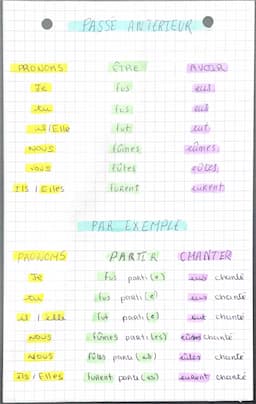 PASSÉ ANTÉRIEUR
PRONOMS ÊTRE AVOIR
Je fus eus
tu fus eus
il / Elle fut eut
NOUS fûmes eûmes
vous fûtes eûtes
Ils / Elles furent eurent
PAR EXEMPLE
PRONOMS PARTIR CHANTER
Je fus parti (e) eus chanté
tu fus parti (e) eus chanté
il / elle fut parti (e) eut chanté
NOUS fûmes parti (es) eûmes chanté
NOUS fûtes parti (es) eûtes chanté
ils / Elles furent partis (es) eurent chanté